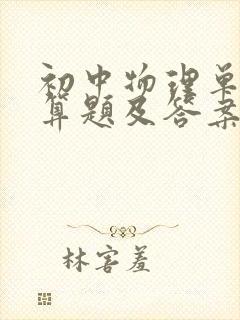 初中物理单
算题及答案
林害羞